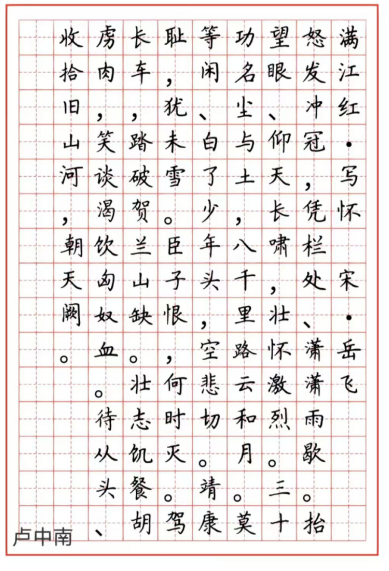 满江红·写怀 宋·岳飞
怒发冲冠，凭栏处、潇潇雨歇。抬
望眼、仰天长啸，壮怀激烈。三十
功名尘与土，八千里路云和月。莫
等闲、白了少年头，空悲切。靖康
耻，犹未雪。臣子恨，何时灭。驾
长车，踏破贺兰山缺。壮志饥餐胡
虏肉，笑谈渴饮匈奴血。待从头、
收拾旧山河，朝天阙。
卢中南